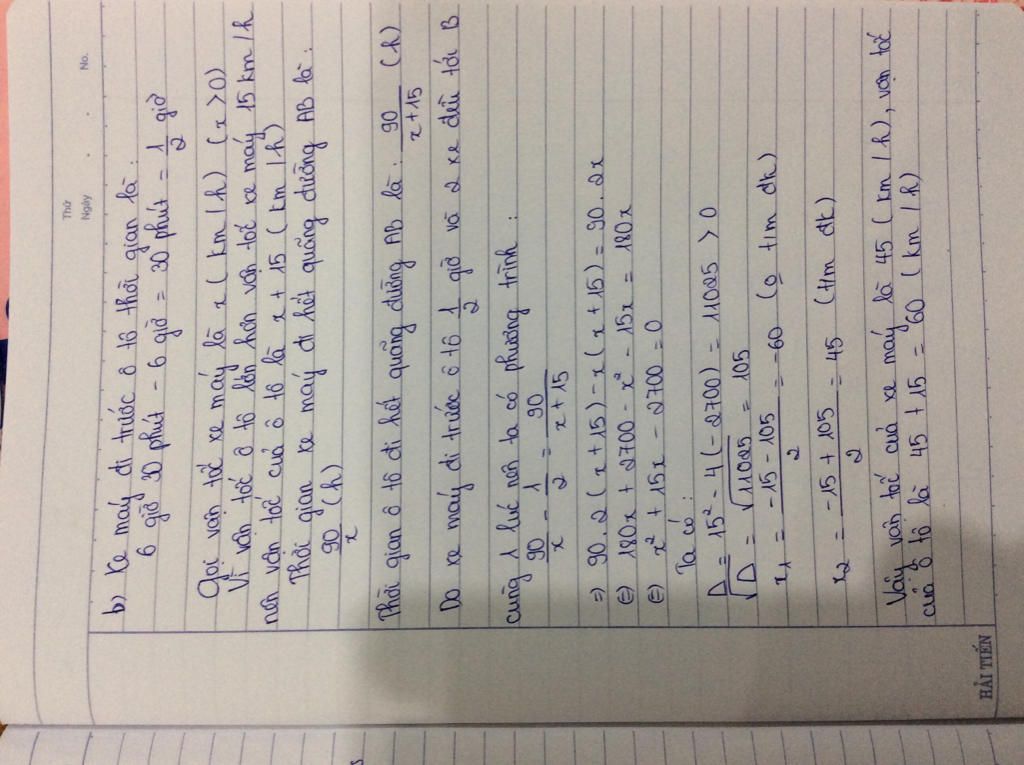 Thứ
Ngày . . No.
b) Xe máy đi trước ô tô thời gian là :
6 giờ 30 phút - 6 giờ = 30 phút = 1/2 giờ
Gọi vận tốc xe máy là x ( km / h ) ( x > 0 )
Vì vận tốc ô tô lớn hơn vận tốc xe máy 15 km / h
nên vận tốc của ô tô là x + 15 ( km / h )
Thời gian xe máy đi hết quãng đường AB là :
90/x (h)
Thời gian ô tô đi hết quãng đường AB là : 90/(x + 15) (h)
Do xe máy đi trước ô tô 1/2 giờ và 2 xe đều tới B
cùng 1 lúc nên ta có phương trình :
90/x - 1/2 = 90/(x + 15)
⇒ 90 . 2 ( x + 15 ) - x ( x + 15 ) = 90 . 2x
⇔ 180x + 2700 - x² - 15x = 180x
⇔ x² + 15x - 2700 = 0
Ta có :
Δ = 15² - 4 ( - 2700 ) = 11025 > 0
√Δ = √11025 = 105
x₁ = (-15 - 105)/2 = -60 ( o tm đk )
x₂ = (-15 + 105)/2 = 45 ( tm đk )
Vậy vận tốc của xe máy là 45 ( km / h ) , vận tốc
của ô tô là 45 + 15 = 60 ( km / h )
HẢI TIẾN